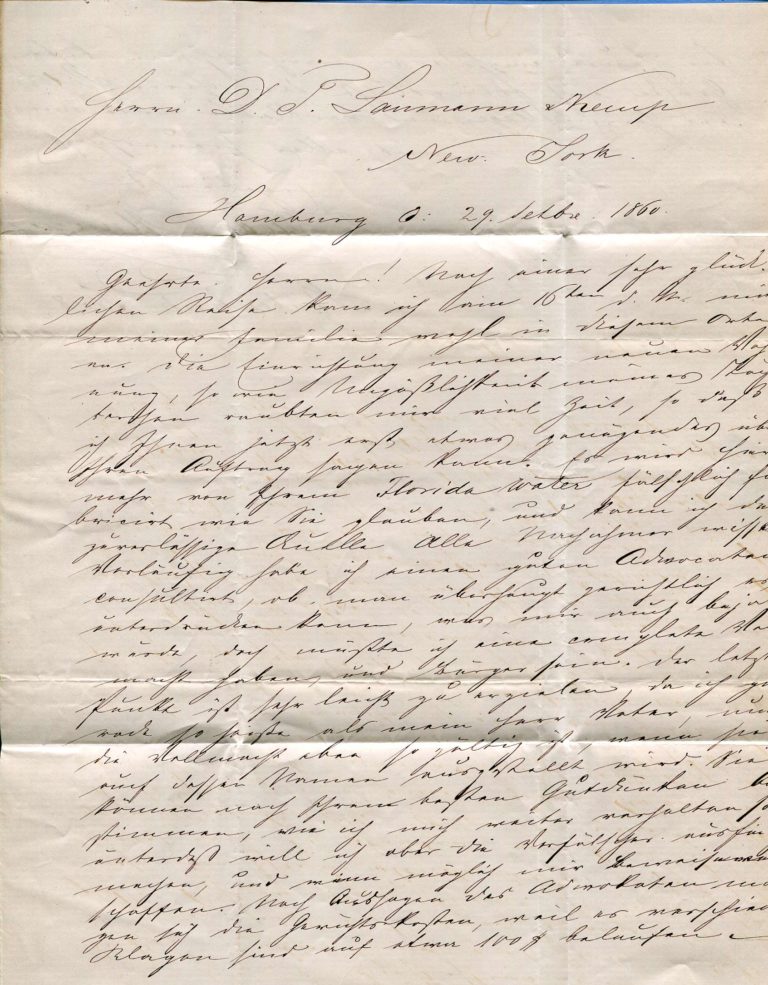 Herrn. D. T. Lanmann & Kemp
New. York.
Hamburg d: 29. Setbre. 1860.
Geehrte. Herren! Nach einer sehr glück-
lichen Reise kam ich am 16ten d. M. mit
meiner Familie wohl in diesem Orte
an. Die Einrichtung meiner neuen Woh
nung, so wie Unpäßlichkeit meines Töch
terchen raubten mir viel Zeit, so daß
ich Ihnen jetzt erst etwas genügendes üb
Ihren Auftrag sagen kann. Es wird hier
mehr von Ihrem Florida Water fälschlich fa
bricirt wie Sie glauben, und kann ich du
zuverlässige Quelle Alle Nachahmer wisse
Vorläufig habe ich einen guten Advocaten
consultirt, ob man überhaupt gerichtlich es
unterdrücken kann, was mir auch beja
wurde, doch müßte ich eine complete Vo
macht haben, und Bürger sein. Der letzt
Punkt ist sehr leicht zu erzielen, da ich ge
rade so heiße als mein Herr Vater, und
die Vollmacht eben so gültig ist, wenn sie
auf dessen Namen ausgestellt wird. Sie
können nach Ihrem besten Gutdünken be
stimmen, wie ich mich weiter verhalten so
unterdeß will ich aber die Verfälscher ausfin
machen, und wenn möglich mir Beweise
schaffen. Nach Aussagen des Advokaten
gen sich die Gerichtskosten, weil es verschied
Klagen sind auf etwa 100 $ belaufen